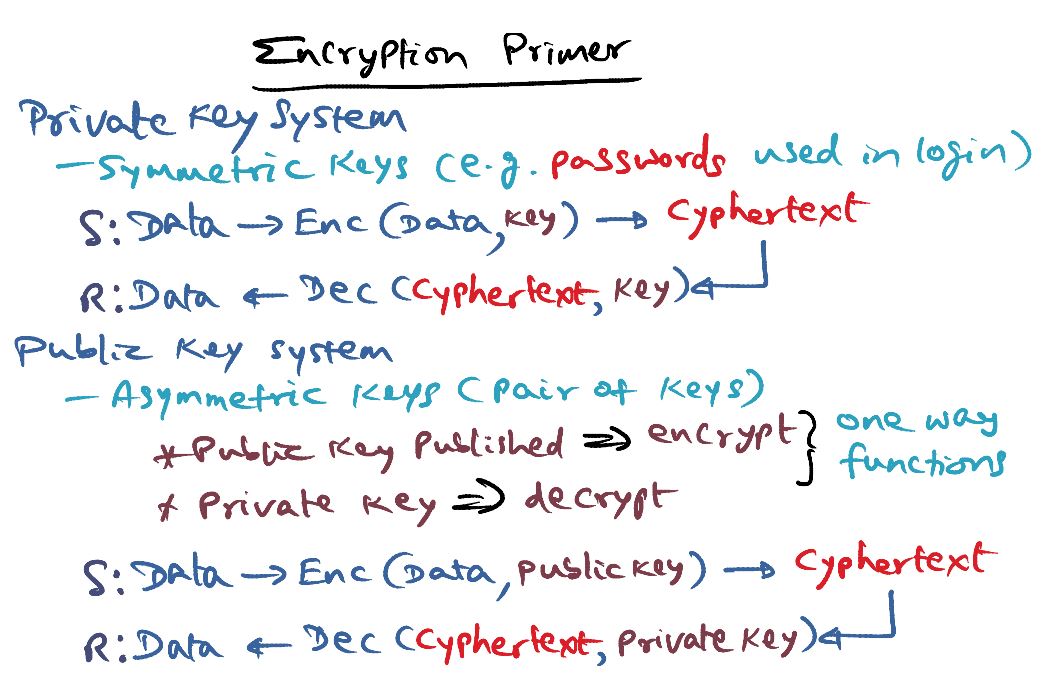 Encryption Primer
Private Key System
- Symmetric Keys (e.g. passwords used in login)
S: Data → Enc (Data, Key) → Cyphertext
R: Data ← Dec (Cyphertext, Key)
Public Key System
- Asymmetric Keys (pair of keys)
* Public Key Published ⇒ encrypt } one way
* Private Key ⇒ decrypt functions
S: Data → Enc (Data, public key) → Cyphertext
R: Data ← Dec (Cyphertext, private key)